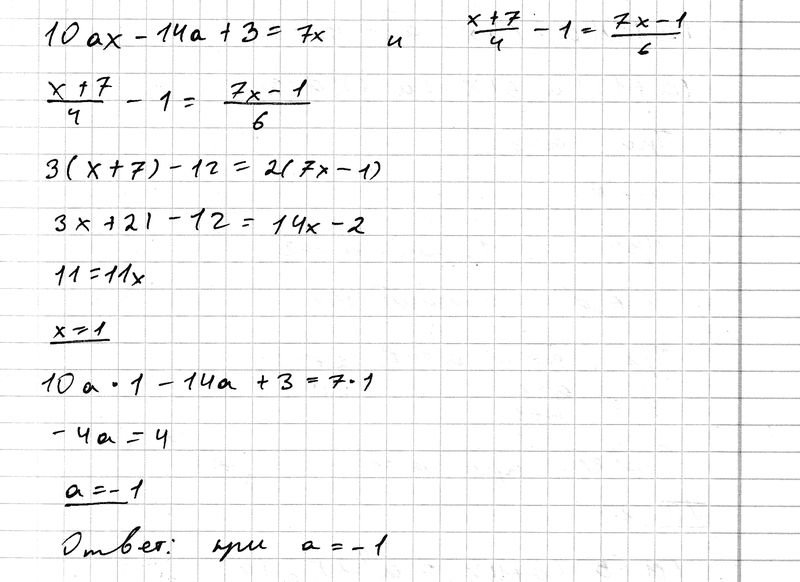 10ax - 14a + 3 = 7x и (x+7)/4 - 1 = (7x-1)/6
(x+7)/4 - 1 = (7x-1)/6
3(x+7) - 12 = 2(7x-1)
3x + 21 - 12 = 14x - 2
11 = 11x
x = 1
10a · 1 - 14a + 3 = 7 · 1
-4a = 4
a = -1
Ответ: при a = -1